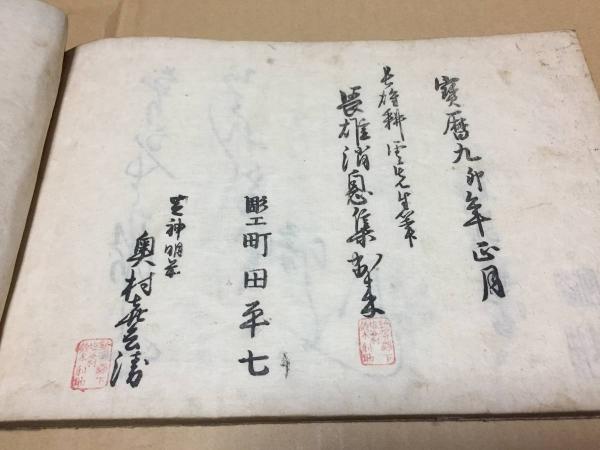 寳暦九卯年正月
長雄耕雲先生筆
長雄消息集出来
彫工町田平七
芝神明前
奥村喜兵衛